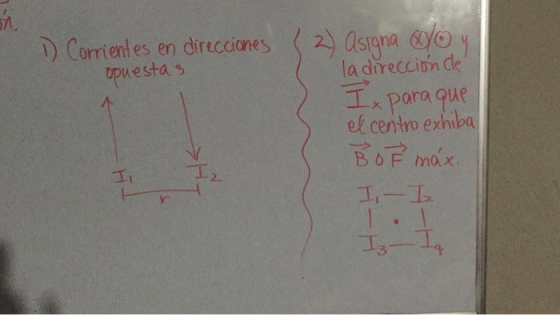 ón.
1) Corrientes en direcciones
opuestas
I₁ I₂
r
2) Asigna ⊗/⊙ y
la dirección de
I⃗ₓ para que
el centro exhiba
B⃗ o F⃗ máx.
I₁ — I₂
| · |
I₃ — I₄